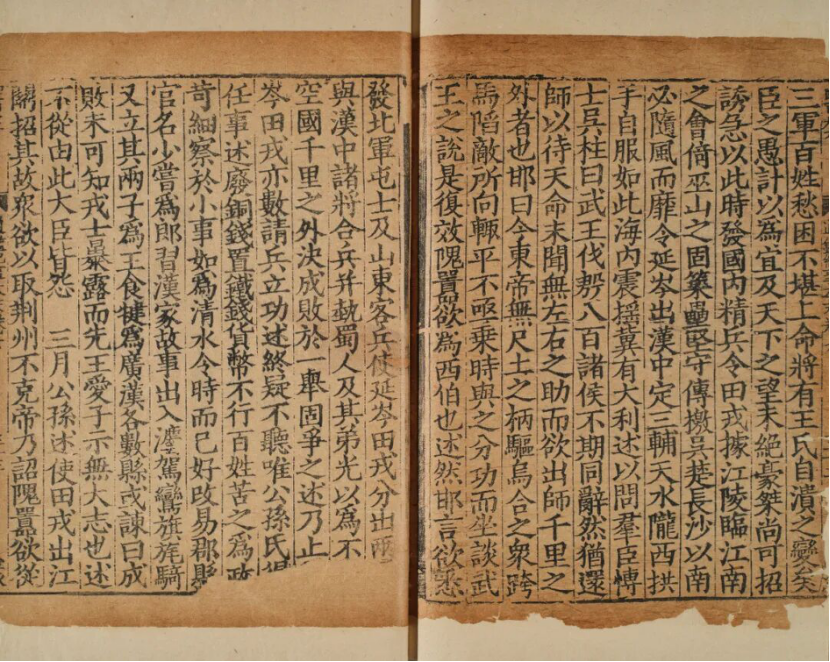 三軍百姓愁困不堪上命將有王氏自潰之變矣
臣之愚計以為宜及天下之望未絕豪桀尚可招
誘急以此時發國内精兵令田戎據江陵臨江南
之會倚巫山之固築壘堅守傳檄吳楚長沙以南
必隨風而靡令延岑出漢中定三輔天水隴西拱
手自服如此海内震揺兾有大利述以問羣臣愽
士吳柱曰武王伐殷八百諸侯不期同辭然猶還
師以待天命未聞無左右之助而欲出師千里之
外者也邯曰今東帝無尺土之柄驅烏合之衆跨
馬䧟敵所向輙平不亟乗時與之分功而坐談武
王之說是復效隗囂欲為西伯也述然邯言欲悉
發北軍屯士及山東客兵使延岑田戎分出兩
與漢中諸將合兵并埶蜀人及其弟光以為不
空國千里之外決成敗於一舉固爭之述乃止
岑田戎亦數請兵立功述終疑不聽唯公孫氏
任事述廢銅錢置鐵錢貨幣不行百姓苦之為政
苛細察於小事如為清水令時而已好改易郡縣
官名小嘗為郎習漢家故事出入灋駕鸞旗旄騎
又立其兩子為王食犍為廣漢各數縣或諫曰成
敗未可知戎士暴露而先王愛子示無大志也述
不從由此大臣皆怨 三月公孫述使田戎出江
關招其故衆欲以取荆州不克帝乃詔隗囂欲從